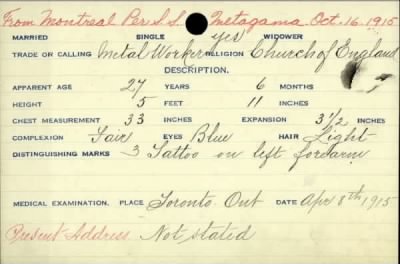 From Montreal Per S.S. Metagama Oct. 16. 1915
MARRIED SINGLE yes WIDOWER
TRADE OR CALLING Metal Worker RELIGION Church of England
DESCRIPTION.
APPARENT AGE 27 YEARS 6 MONTHS
HEIGHT 5 FEET 11 INCHES
CHEST MEASUREMENT 33 INCHES EXPANSION 3 1/2 INCHES
COMPLEXION Fair EYES Blue HAIR Light
DISTINGUISHING MARKS 3 Tattoo on left forearm
MEDICAL EXAMINATION. PLACE Toronto Ont DATE Apr 8th, 1915
Present Address Not stated